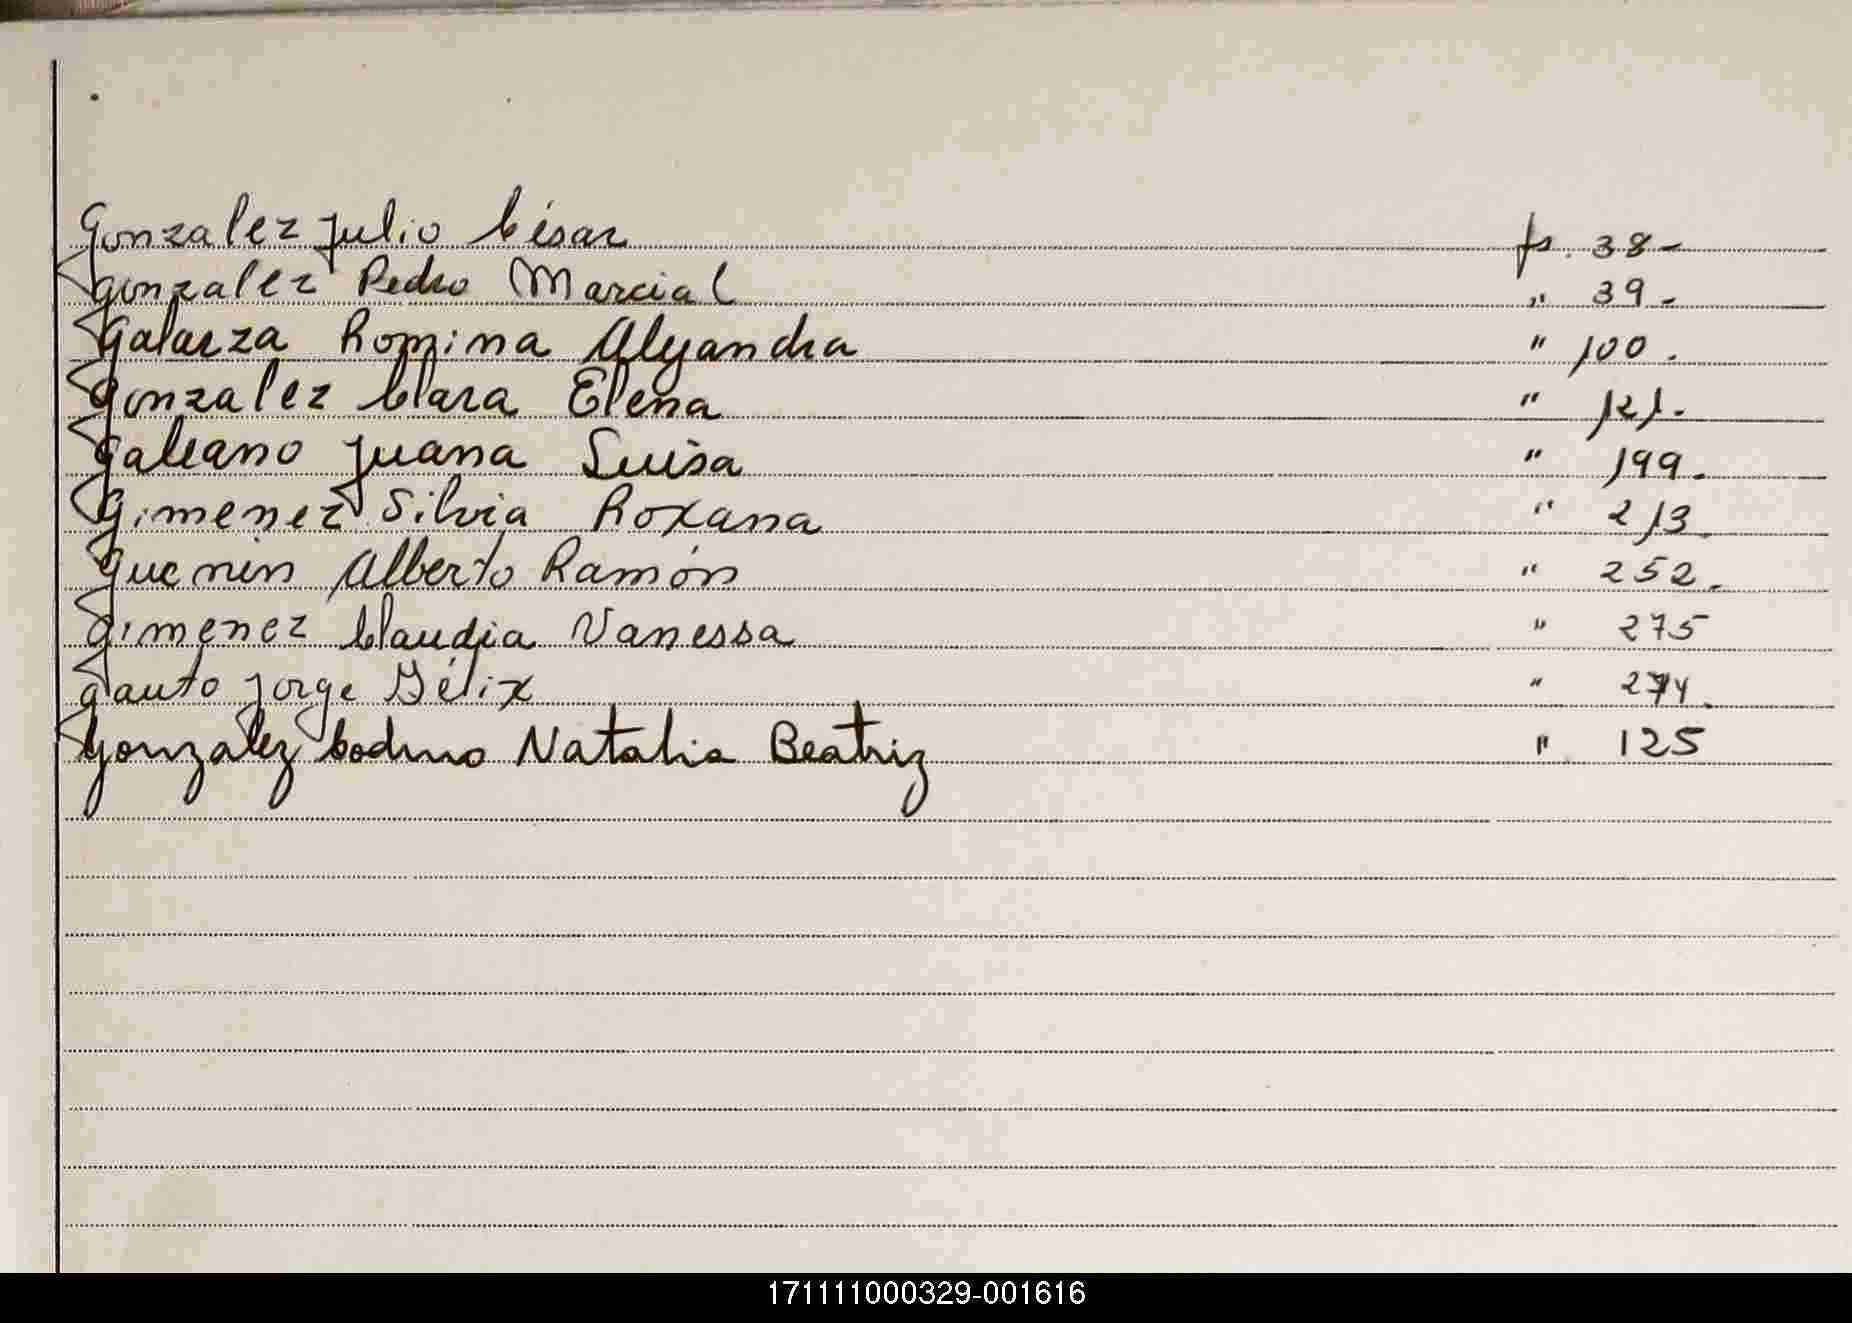 Gonzalez Julio César fs. 38-
Gonzalez Pedro Marcial " 39-
Galarza Romina Alejandra " 100.
Gonzalez Clara Elena " 121.
Galeano Juana Luisa " 199.
Gimenez Silvia Roxana " 213.
Alberto Ramón " 252.
Gimenez Claudia Vanessa " 275
Gauto Jorge Félix " 274.
Gonzalez Natalia Beatriz " 125
171111000329-001616